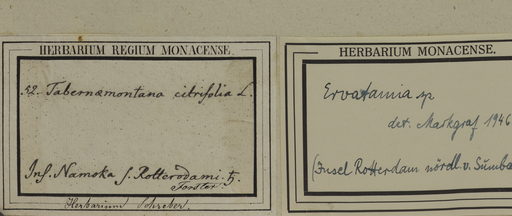 HERBARIUM REGIUM MONACENSE.
52. Tabernæmontana citrifolia L.
Ins. Namoka s. Rotterodami. 5.
Forster.
Herbarium Schreber
HERBARIUM MONACENSE.
Ervatamia sp
det. Markgraf 1946
(Insel Rotterdam nördl. v. Sumba